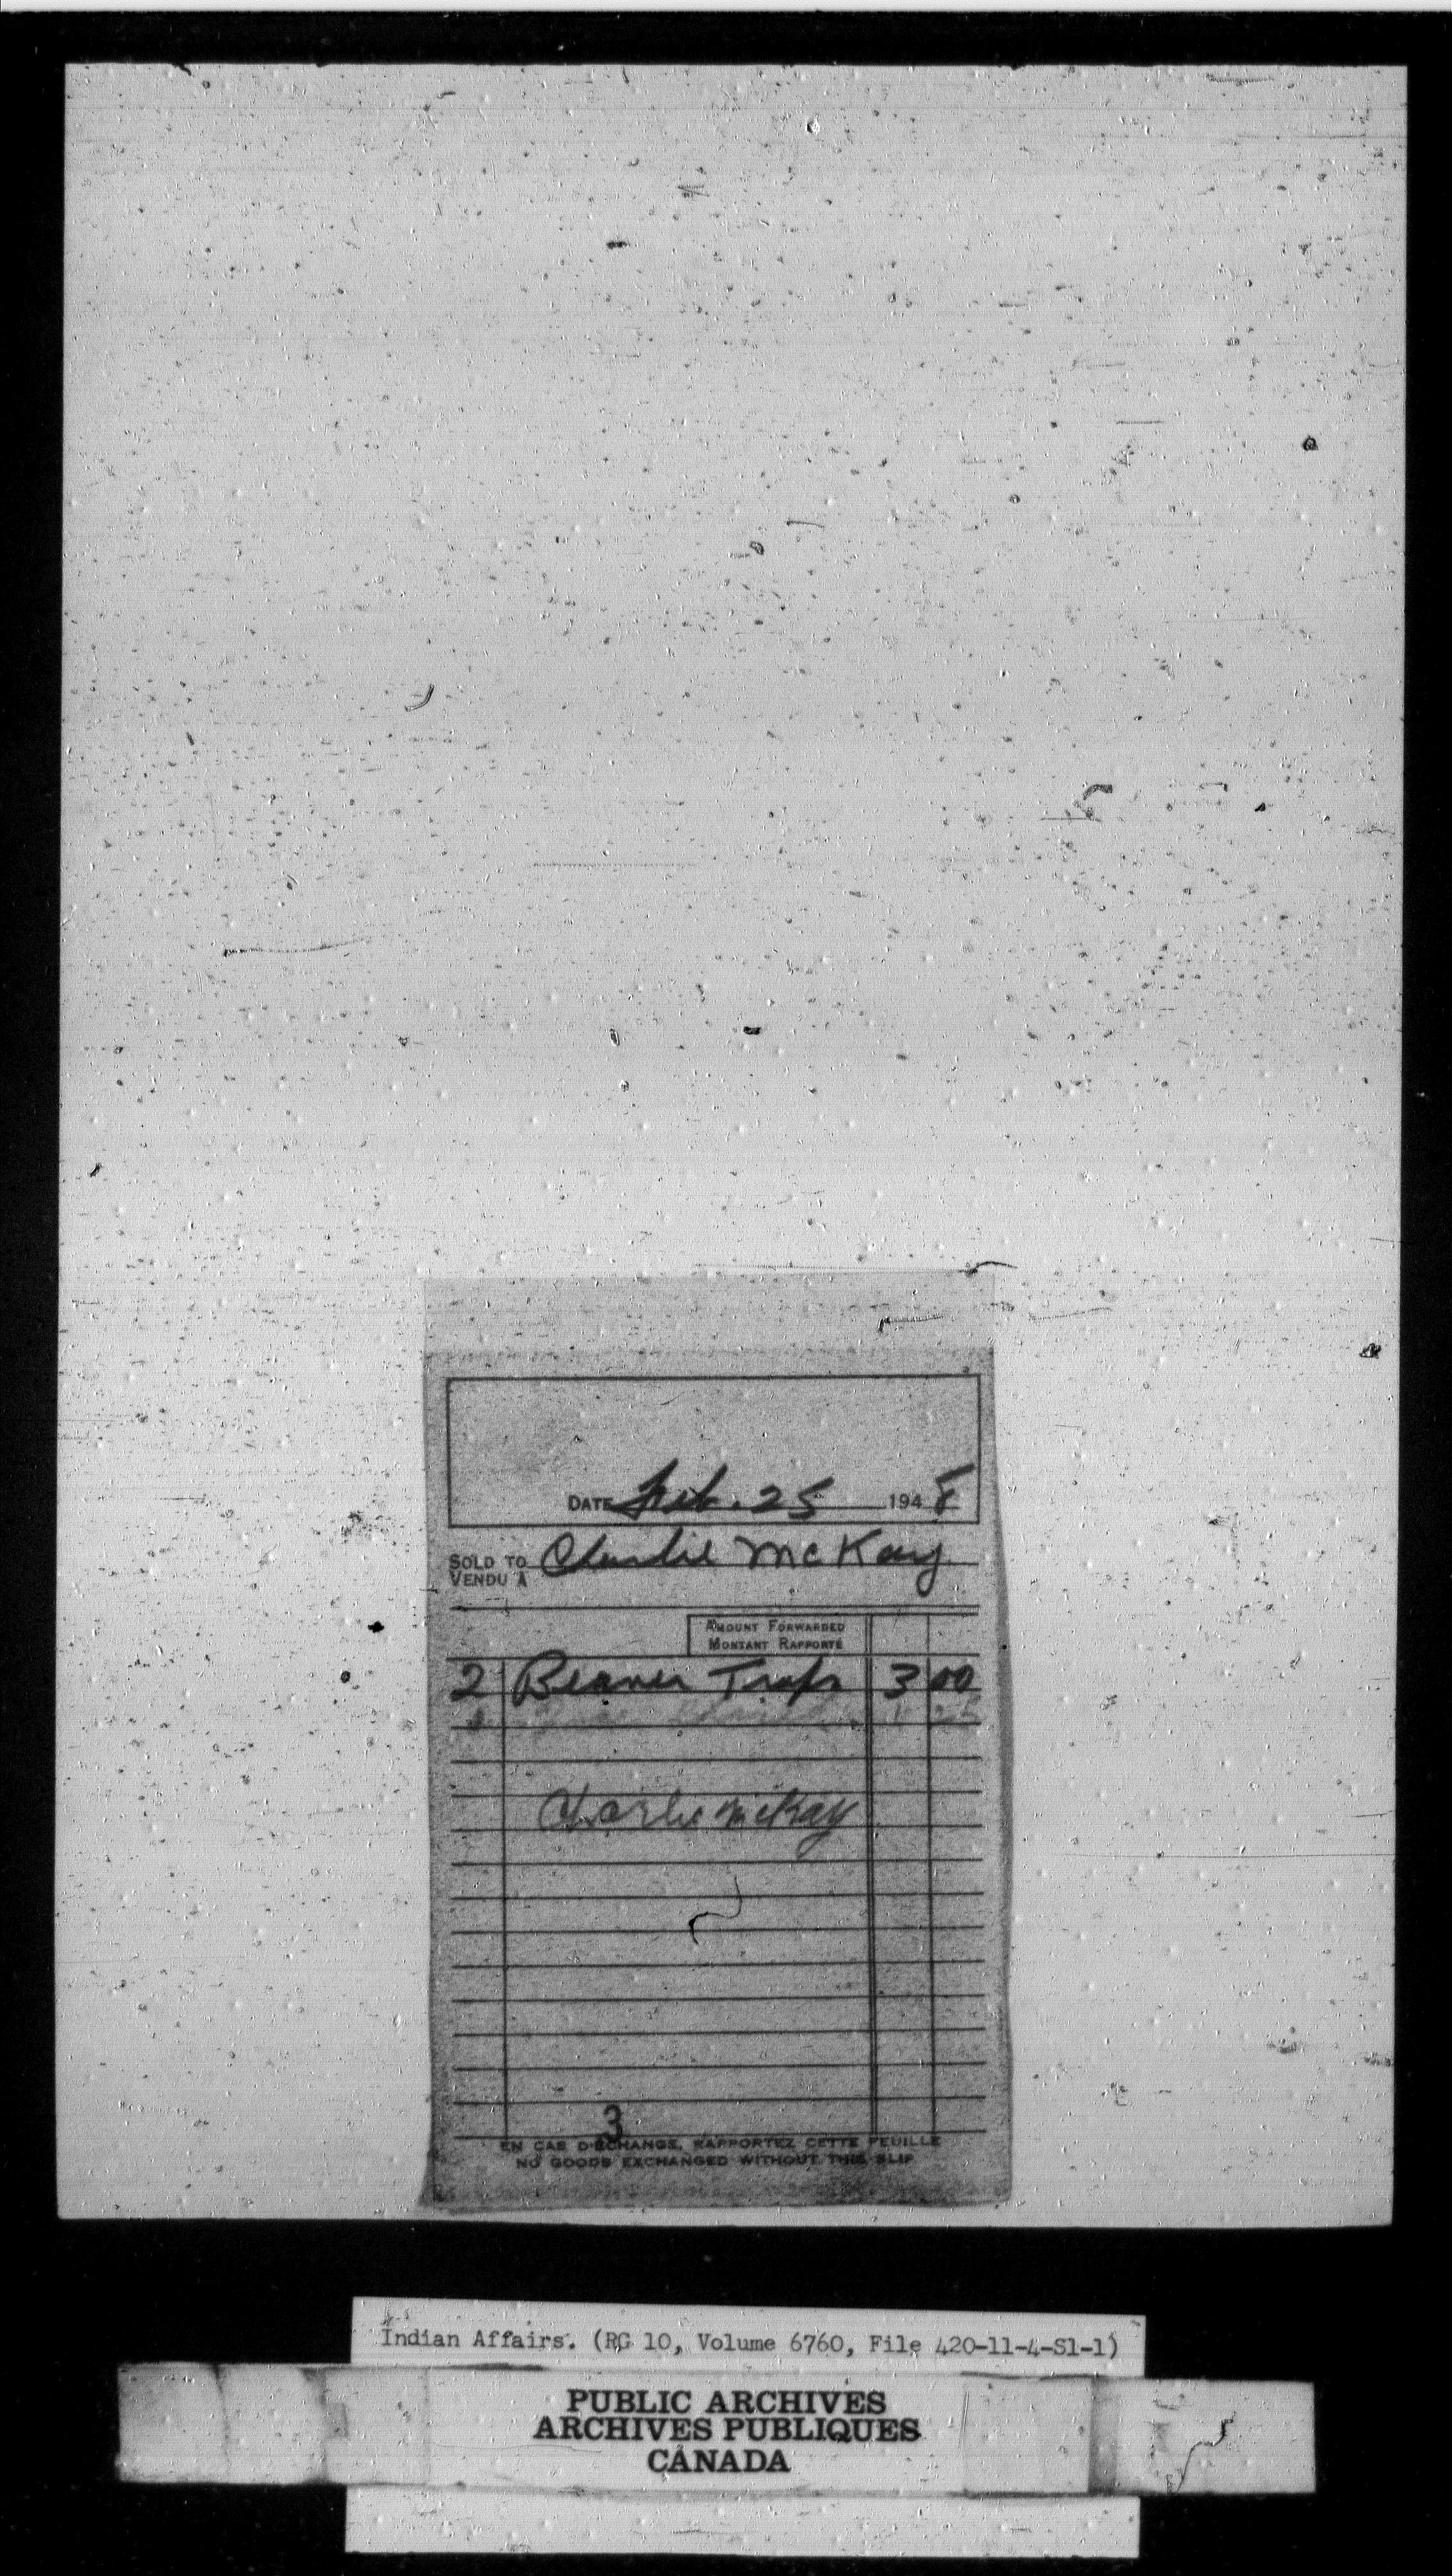 DATE Feb. 25 1948
SOLD TO Charlie McKay
VENDU À
AMOUNT FORWARDED
MONTANT RAPPORTÉ
2 Beaver Traps 3 00
1 25
Charlie McKay
3
EN CAS D'ÉCHANGE, RAPPORTEZ CETTE FEUILLE
NO GOODS EXCHANGED WITHOUT THIS SLIP
Indian Affairs. (RG 10, Volume 6760, File 420-11-4-S1-1)
PUBLIC ARCHIVES
ARCHIVES PUBLIQUES
CANADA